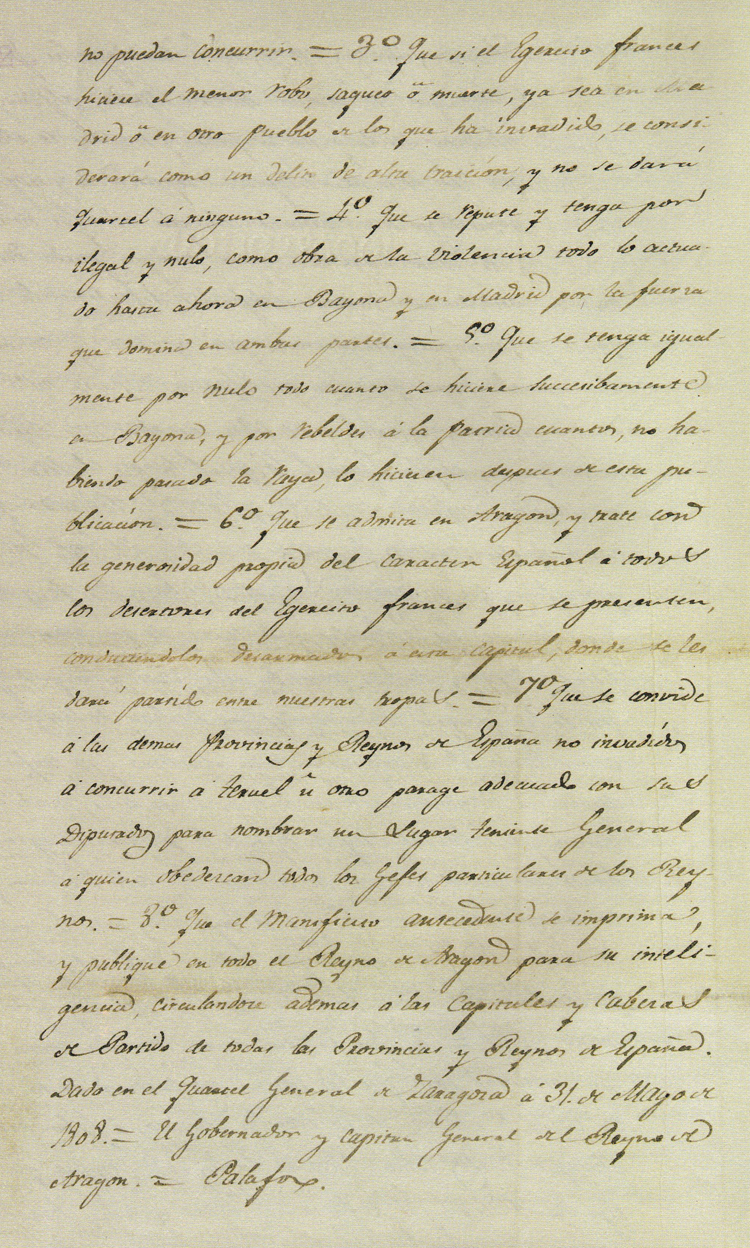 no puedan concurrir. = 3.º Que si el Egercito frances
hiciere el menor robo, saqueo ó muerte, ya sea en Ma
drid ó en otro pueblo de los que ha invadido, se consi-
derará como un delito de alta traición, y no se dará
quartel á ninguno. = 4.º Que se repute y tenga por
ilegal y nulo, como obra de la violencia todo lo actua-
do hasta ahora en Bayona y en Madrid por la fuerza
que domina en ambas partes. = 5.º Que se tenga igual-
mente por nulo todo cuanto se hiciere succesibamente
en Bayona, y por rebeldes á la patria cuantos, no ha-
biendo pasado la raya, lo hicieren despues de esta pu-
blicación. = 6.º Que se admita en Aragon, y trate con
la generosidad propia del caracter Español á todos
los desertores del Egercito frances que se presenten,
conduciendolos desarmados á esta capital, donde se les
dará partido entre nuestras tropas. = 7.º Que se convide
á las demas Provincias y Reynos de España no invadidos
á concurrir á Teruel ú otro parage adecuado con sus
Diputados para nombrar un Lugar teniente General
á quien obedezcan todos los Gefes particulares de los Rey-
nos. = 8.º Que el Manifiesto antecedente se imprima,
y publique en todo el Reyno de Aragon para su inteli-
gencia, circulandose ademas á las Capitales y Cabezas
de Partido de todas las Provincias y Reynos de España.
Dado en el Quartel General de Zaragoza á 31. de Mayo de
1808. = El Gobernador y capitan General del Reyno de
Aragon. = Palafox.